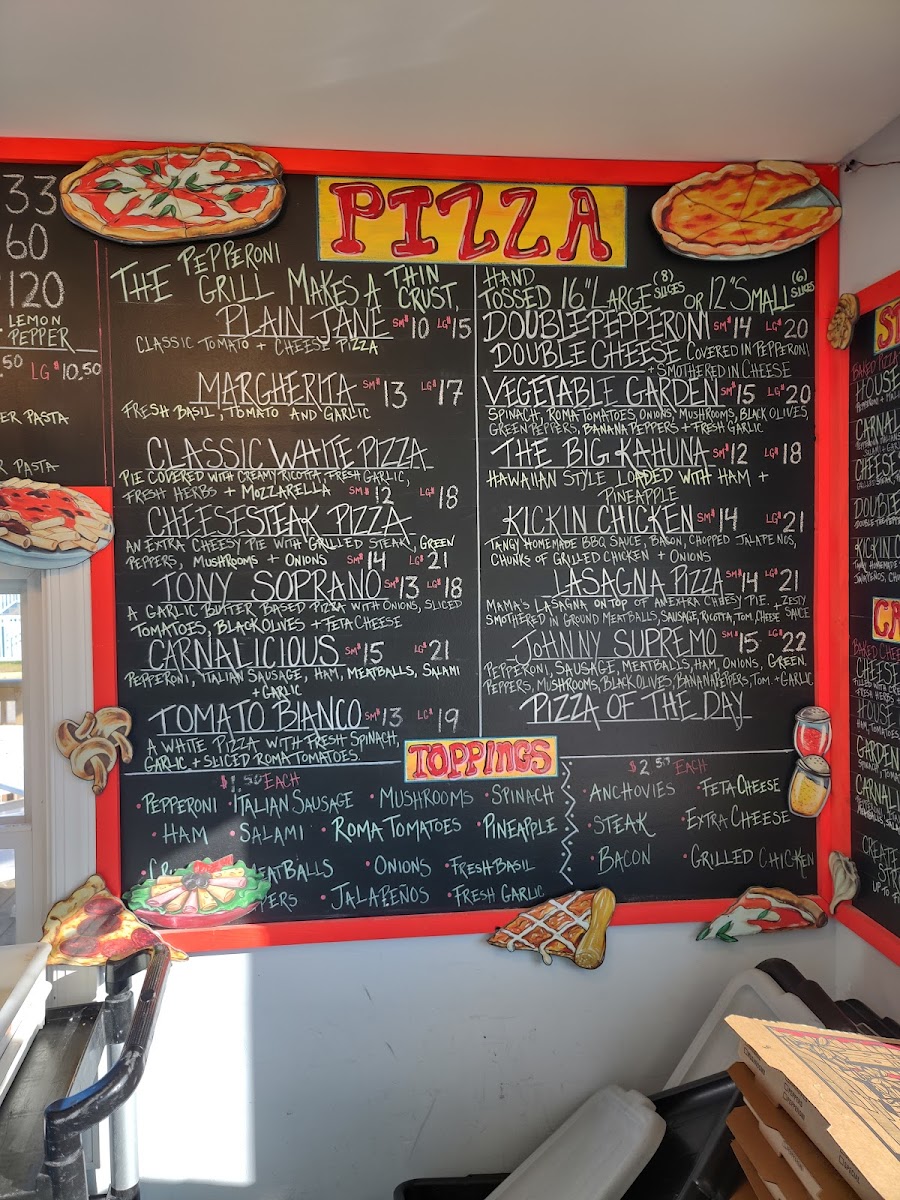 33
60
120
LEMON
PEPPER
.50 LG$10.50
PASTA
PASTA
PIZZA
THE PEPPERONI GRILL MAKES A THIN CRUST,
HAND TOSSED 16" LARGE (8) SLICES OR 12" SMALL (6) SLICES
PLAIN JANE SM$10 LG$15
CLASSIC TOMATO + CHEESE PIZZA
MARGHERITA SM$13 LG$17
FRESH BASIL, TOMATO AND GARLIC
CLASSIC WHITE PIZZA
PIE COVERED WITH CREAMY RICOTTA, FRESH GARLIC,
FRESH HERBS + MOZZARELLA SM$12 LG$18
CHEESESTEAK PIZZA
AN EXTRA CHEESY PIE WITH GRILLED STEAK, GREEN
PEPPERS, MUSHROOMS + ONIONS SM$14 LG$21
TONY SOPRANO SM$13 LG$18
A GARLIC BUTTER BASED PIZZA WITH ONIONS, SLICED
TOMATOES, BLACK OLIVES + FETA CHEESE
CARNALICIOUS SM$15 LG$21
PEPPERONI, ITALIAN SAUSAGE, HAM, MEATBALLS, SALAMI
+ GARLIC
TOMATO BIANCO SM$13 LG$19
A WHITE PIZZA WITH FRESH SPINACH,
GARLIC + SLICED ROMA TOMATOES.
DOUBLE PEPPERONI SM$14 LG$20
DOUBLE CHEESE COVERED IN PEPPERONI
+ SMOTHERED IN CHEESE
VEGETABLE GARDEN SM$15 LG$20
SPINACH, ROMA TOMATOES, ONIONS, MUSHROOMS, BLACK OLIVES,
GREEN PEPPERS, BANANA PEPPERS + FRESH GARLIC
THE BIG KAHUNA SM$12 LG$18
HAWAIIAN STYLE LOADED WITH HAM +
PINEAPPLE
KICKIN CHICKEN SM$14 LG$21
TANGY HOMEMADE BBQ SAUCE, BACON, CHOPPED JALAPENOS,
CHUNKS OF GRILLED CHICKEN + ONIONS
LASAGNA PIZZA SM$14 LG$21
MAMA'S LASAGNA ON TOP OF AN EXTRA CHEESY PIE.
SMOTHERED IN GROUND MEATBALLS, SAUSAGE, RICOTTA, TOM. CHEESE + ZESTY SAUCE
JOHNNY SUPREMO SM$15 LG$22
PEPPERONI, SAUSAGE, MEATBALLS, HAM, ONIONS, GREEN
PEPPERS, MUSHROOMS, BLACK OLIVES, BANANA PEPPERS, TOM. + GARLIC
PIZZA OF THE DAY
TOPPINGS
$1.50 EACH
•PEPPERONI •ITALIAN SAUSAGE •MUSHROOMS •SPINACH
•HAM •SALAMI •ROMA TOMATOES •PINEAPPLE
MEATBALLS •ONIONS •FRESH BASIL
•JALAPEÑOS •FRESH GARLIC
$2.50 EACH
•ANCHOVIES •FETA CHEESE
•STEAK •EXTRA CHEESE
•BACON •GRILLED CHICKEN